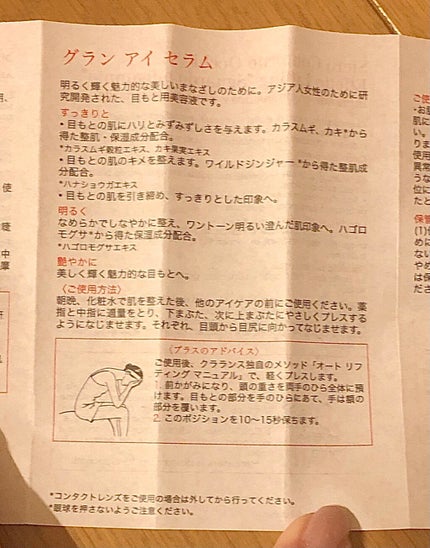 グラン アイ セラム
明るく輝く魅力的な美しいまなざしのために。アジア人女性のために研
究開発された、目もと用美容液です。
すっきりと
・目もとの肌にハリとみずみずしさを与えます。カラスムギ、カキ*から
得た整肌・保湿成分配合。
*カラスムギ穀粒エキス、カキ果実エキス
・目もとの肌のキメを整えます。ワイルドジンジャー*から得た整肌成
分配合。
*ハナショウガエキス
・目もとの肌を引き締め、すっきりとした印象へ。
明るく
なめらかでしなやかに整え、ワントーン明るい澄んだ肌印象へ。ハゴロ
モグサ*から得た保湿成分配合。
*ハゴロモグサエキス
艶やかに
美しく輝く魅力的な目もとへ。
〈ご使用方法〉
朝晩、化粧水で肌を整えた後、他のアイケアの前にご使用ください。薬
指と中指に適量をとり、下まぶた、次に上まぶたにやさしくプレスする
ようになじませます。それぞれ、目頭から目尻に向かってなじませます。
〈プラスのアドバイス〉
ご使用後、クラランス独自のメソッド「オート リフ
ティング マニュアル」で、軽くプレスします。
1. 前かがみになり、頭の重さを両手のひら全体に預
けます。目もとの部分を手のひらにあて、手は額の
部分を覆います。
2. このポジションを10〜15秒保ちます。
*コンタクトレンズをご使用の場合は外してから行ってください。
*眼球を押さないようご注意ください。